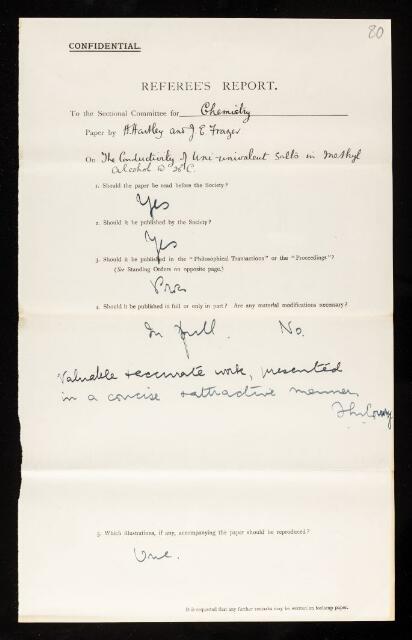 80
CONFIDENTIAL.
REFEREE'S REPORT.
To the Sectional Committee for Chemistry
Paper by H. Hartley and J. E. Frazer
On The Conductivity of Uni-univalent Salts in Methyl
Alcohol @ 25°C.
1. Should the paper be read before the Society?
Yes
2. Should it be published by the Society?
Yes
3. Should it be published in the "Philosophical Transactions" or the "Proceedings"?
(See Standing Orders on opposite page.)
Proc
4. Should it be published in full or only in part? Are any material modifications necessary?
In full. No.
Valuable & accurate work, presented
in a concise & attractive manner.
5. Which illustrations, if any, accompanying the paper should be reproduced?
One.
It is requested that any further remarks may be written on foolscap paper.